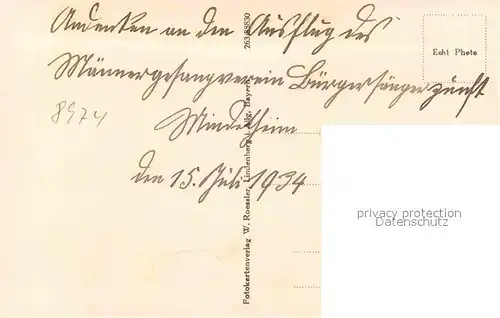 Andenken an den Ausflug des
Männergesangverein Bürgersängerzunft
Mindelheim
den 15. Juli 1934
8974
Echt Photo
Fotokartenverlag W. Roessler, Lindenberg i. Allg. Bayern
263/88830
privacy protection
Datenschutz